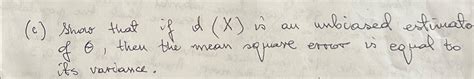 (c) Show that if d(X) is an unbiased estimator
of θ, then the mean square error is equal to
its variance.